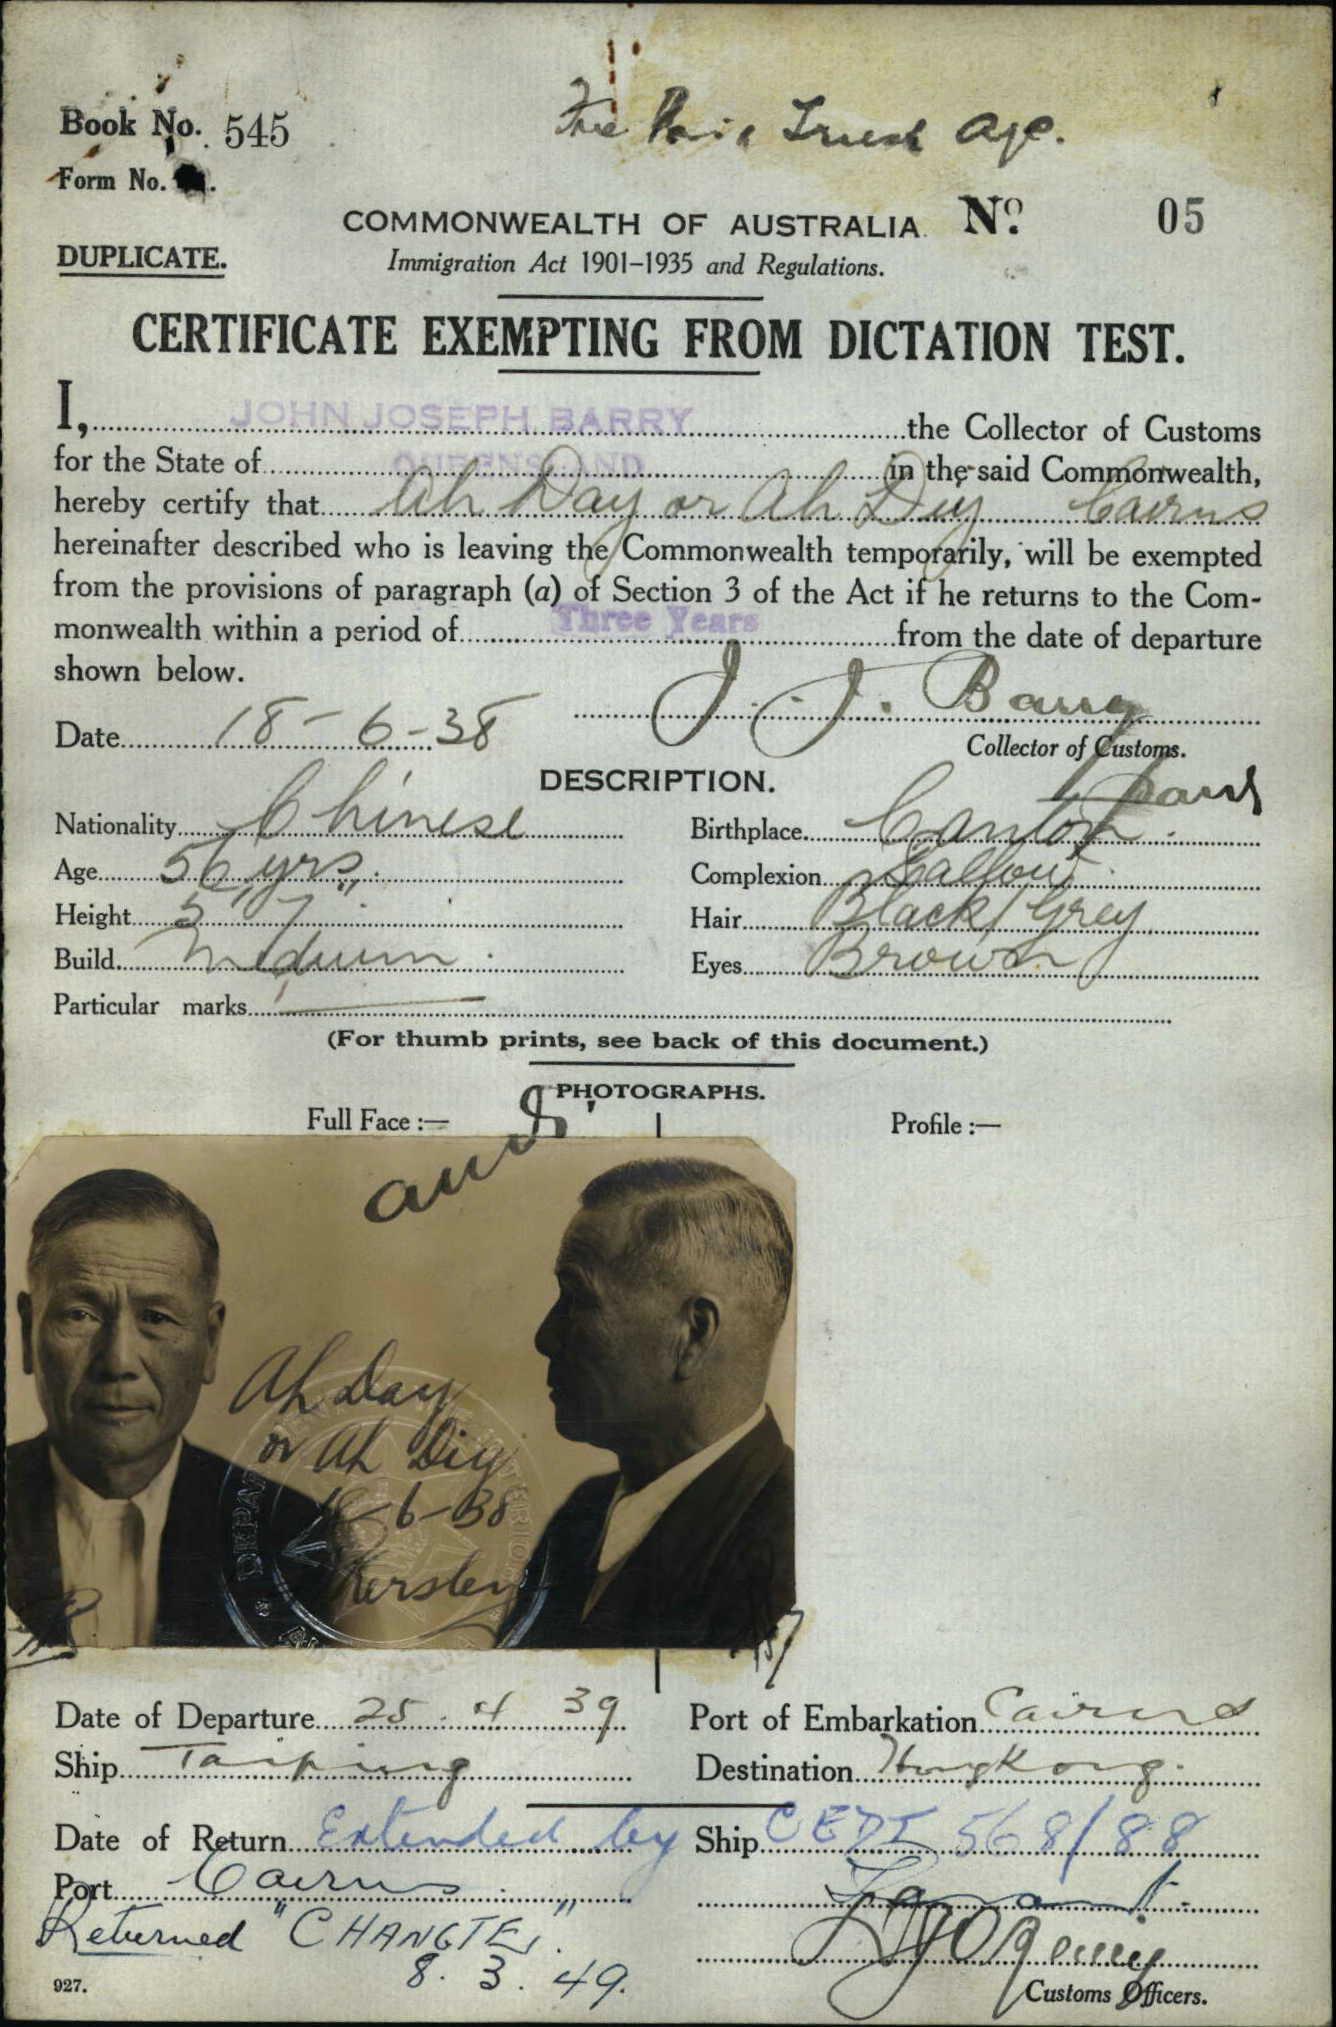 Book No. 545
Form No.
Age.
COMMONWEALTH OF AUSTRALIA. No. 05
DUPLICATE.
Immigration Act 1901–1935 and Regulations.
CERTIFICATE EXEMPTING FROM DICTATION TEST.
I, JOHN JOSEPH BARRY the Collector of Customs
for the State of QUEENSLAND in the said Commonwealth,
hereby certify that Ah Day or Ah Diy Cairns
hereinafter described who is leaving the Commonwealth temporarily, will be exempted
from the provisions of paragraph (a) of Section 3 of the Act if he returns to the Com-
monwealth within a period of Three Years from the date of departure
shown below.
J. J. Barry
Date 18-6-38
Collector of Customs.
DESCRIPTION.
Nationality Chinese Birthplace Canton.
Age 56 yrs. Complexion Sallow
Height 5' 7" Hair Black/Grey
Build Medium Eyes Brown
Particular marks
(For thumb prints, see back of this document.)
PHOTOGRAPHS.
Full Face :— Profile :—
Ah Day
or Ah Diy
18-6-38
Kersley
Date of Departure 25.4.39 Port of Embarkation Cairns
Ship Taiping Destination Hong Kong.
Date of Return Extended by Ship CEDT 568/88
Port Cairns
Returned "CHANGTE".
8.3.49.
927.
Customs Officers.